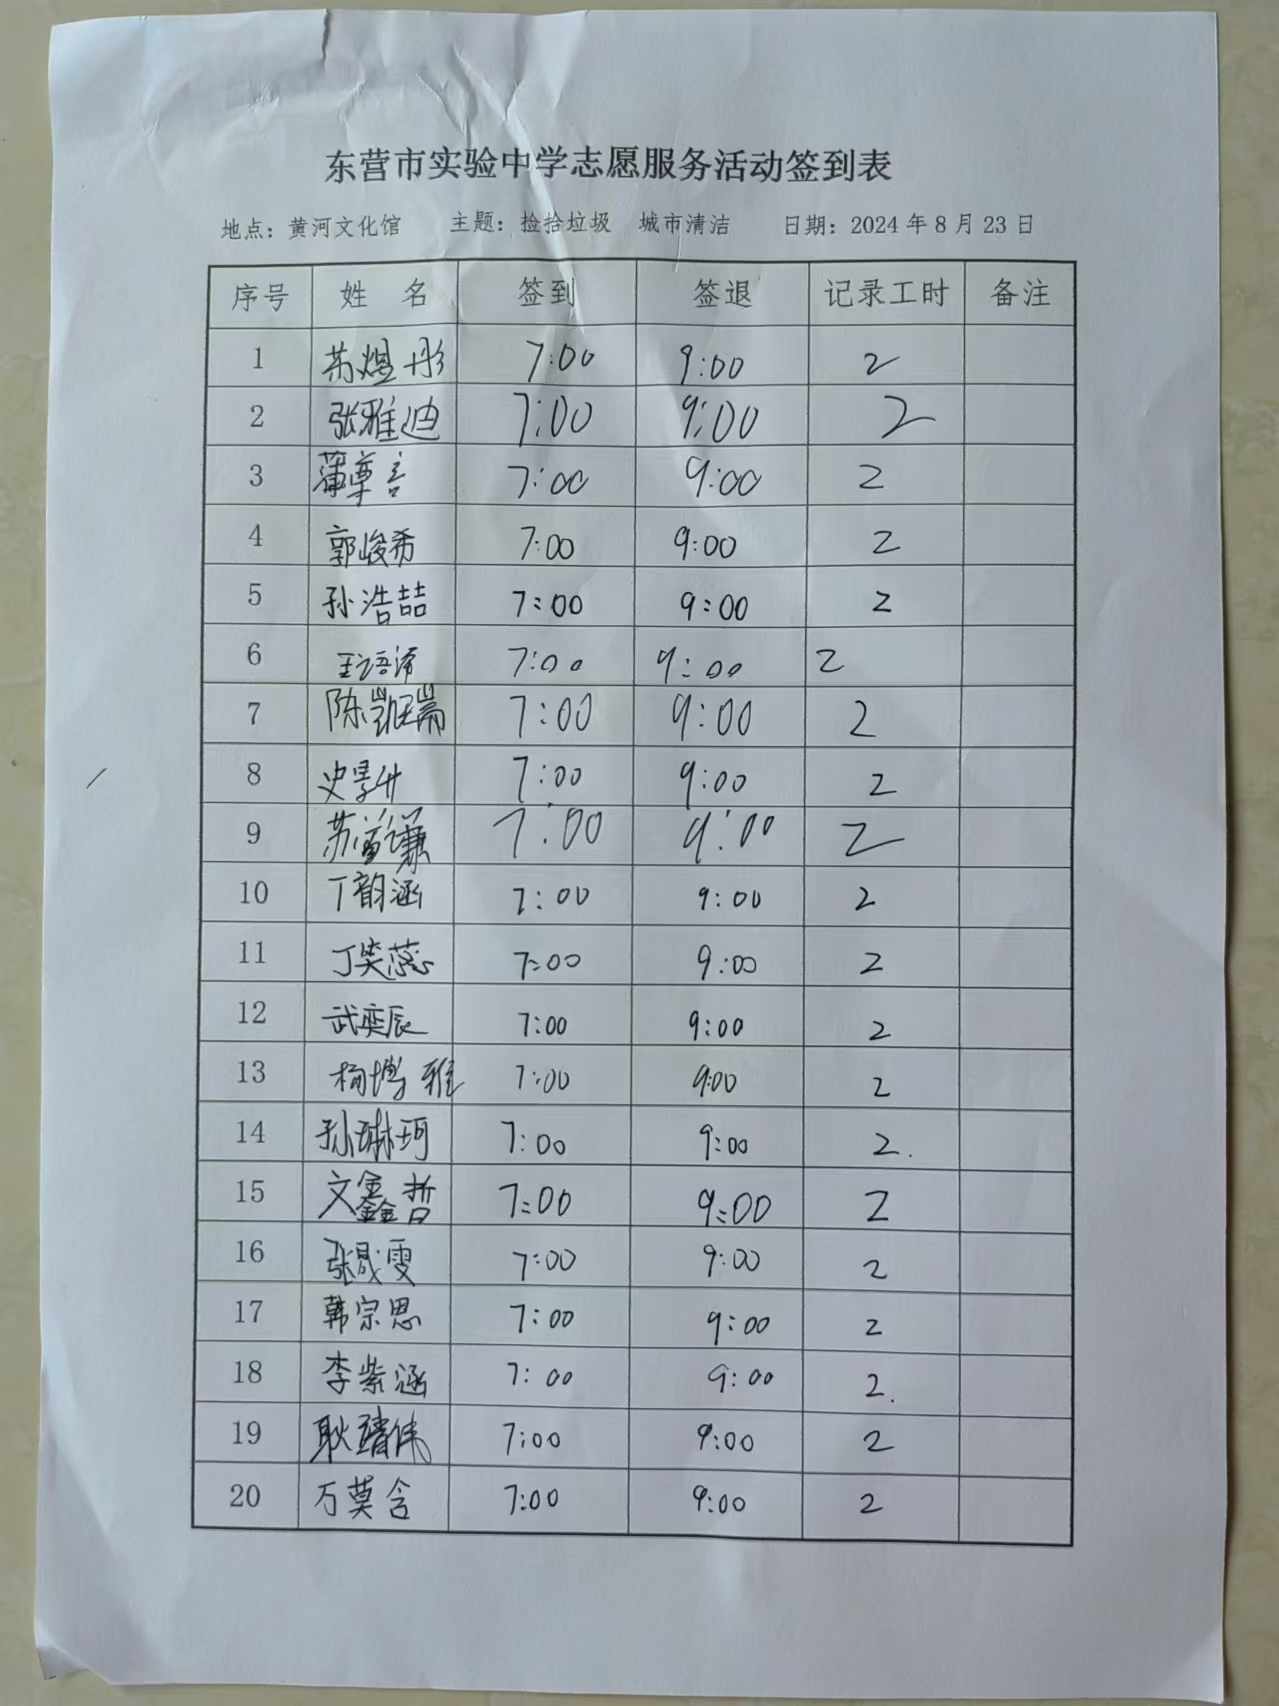 东营市实验中学志愿服务活动签到表
地点：黄河文化馆 主题：捡拾垃圾 城市清洁 日期：2024年8月23日
序号 姓名 签到 签退 记录工时 备注
1 苏煜彤 7:00 9:00 2
2 张雅迪 7:00 9:00 2
3 7:00 9:00 2
4 郭峻希 7:00 9:00 2
5 孙浩喆 7:00 9:00 2
6 王语泽 7:00 9:00 2
7 陈凯瑞 7:00 9:00 2
8 7:00 9:00 2
9 7:00 9:00 2
10 丁韵涵 7:00 9:00 2
11 丁笑蕊 7:00 9:00 2
12 武奕辰 7:00 9:00 2
13 杨博雅 7:00 9:00 2
14 孙琳珂 7:00 9:00 2.
15 文鑫哲 7:00 9:00 2
16 张晟雯 7:00 9:00 2
17 韩宗思 7:00 9:00 2
18 李紫涵 7:00 9:00 2.
19 7:00 9:00 2
20 万莫含 7:00 9:00 2